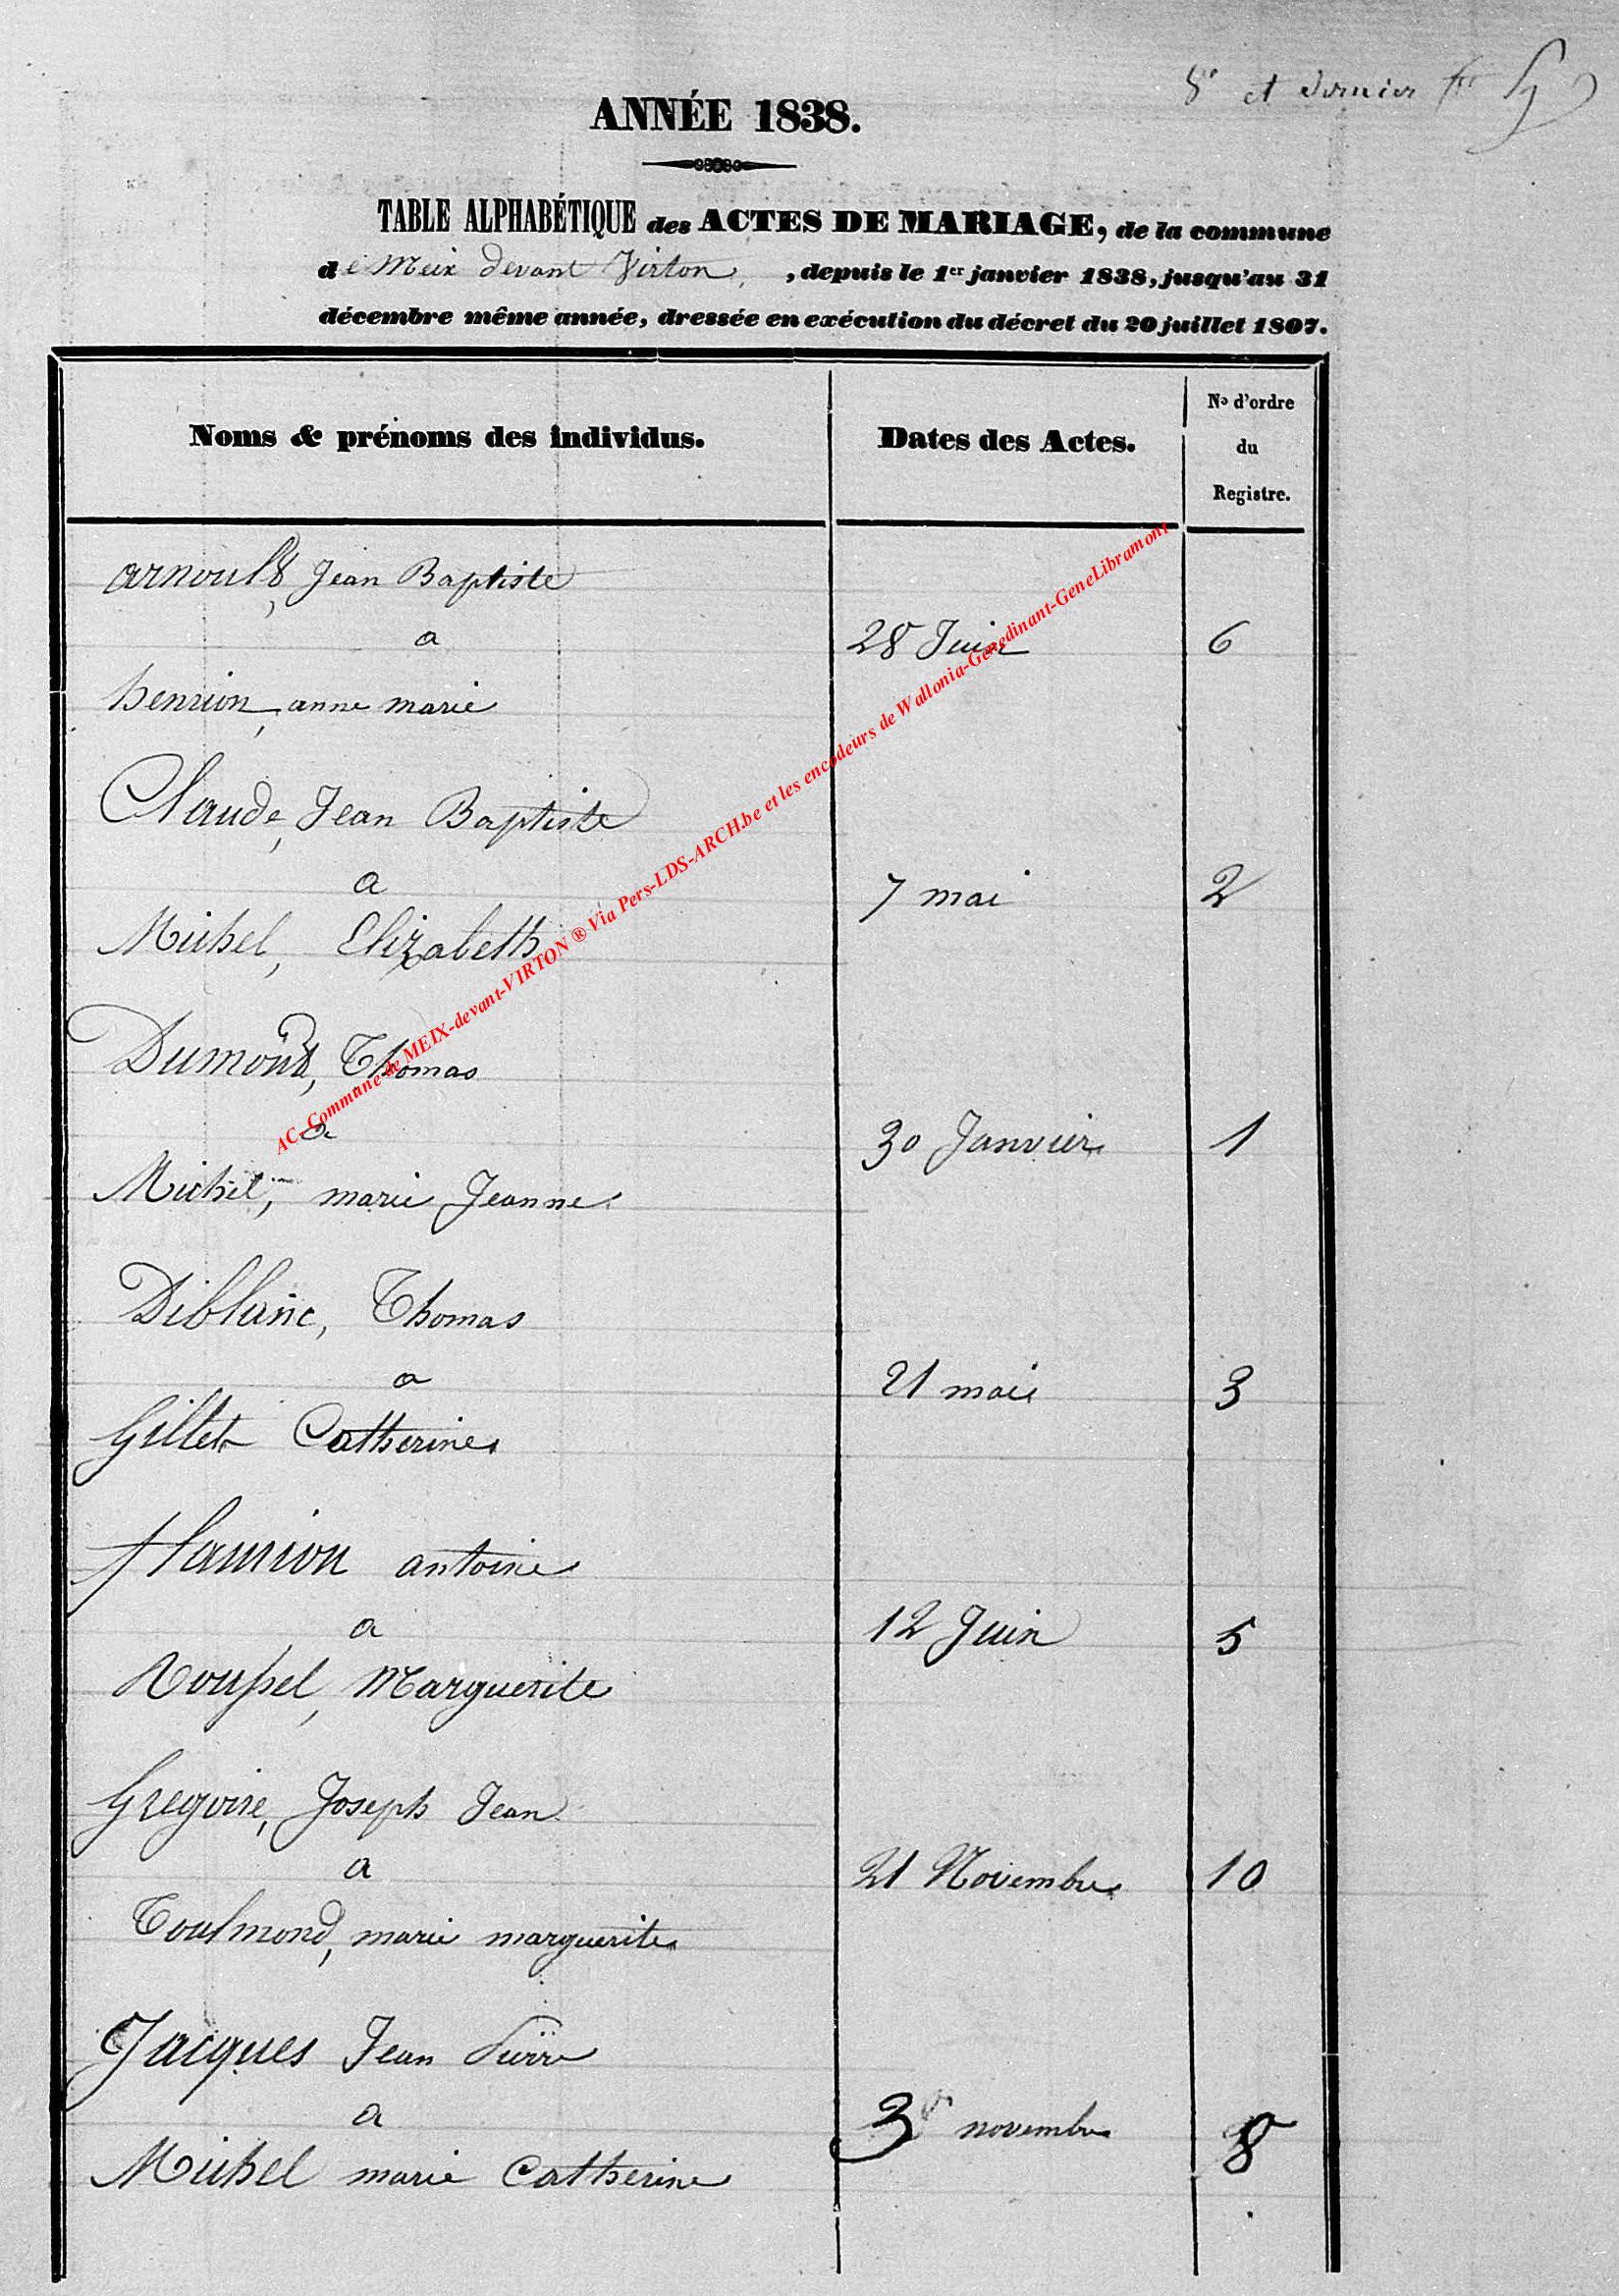 8e et dernier
ANNÉE 1838.
TABLE ALPHABÉTIQUE des ACTES DE MARIAGE, de la commune
de Meix devant Virton, , depuis le 1er janvier 1838, jusqu'au 31
décembre même année, dressée en exécution du décret du 20 juillet 1807.
Noms & prénoms des individus. Dates des Actes. No d'ordre du Registre.
arnould, Jean Baptiste
a 28 Juin 6
henrion, anne marie
Claude, Jean Baptiste
a 7 mai 2
Michel, Elizabeth
Dumond, Thomas
a 30 Janvier 1
Michel, marie Jeanne
Diblanc, Thomas
a 21 mai 3
Gillet Catherine
flamion antoine
a 12 Juin 5
Roussel, Marguerite
Gregoire, Joseph Jean
a 21 Novembre 10
Toulmond, marie marguerite
Jacques Jean Pierre
a 3 novembre 8
Michel marie Catherine
AC-Commune de MEIX-devant-VIRTON ® Via Pers-LDS-ARCH.be et les encodeurs de Wallonia-Genedinant-GeneLibramont